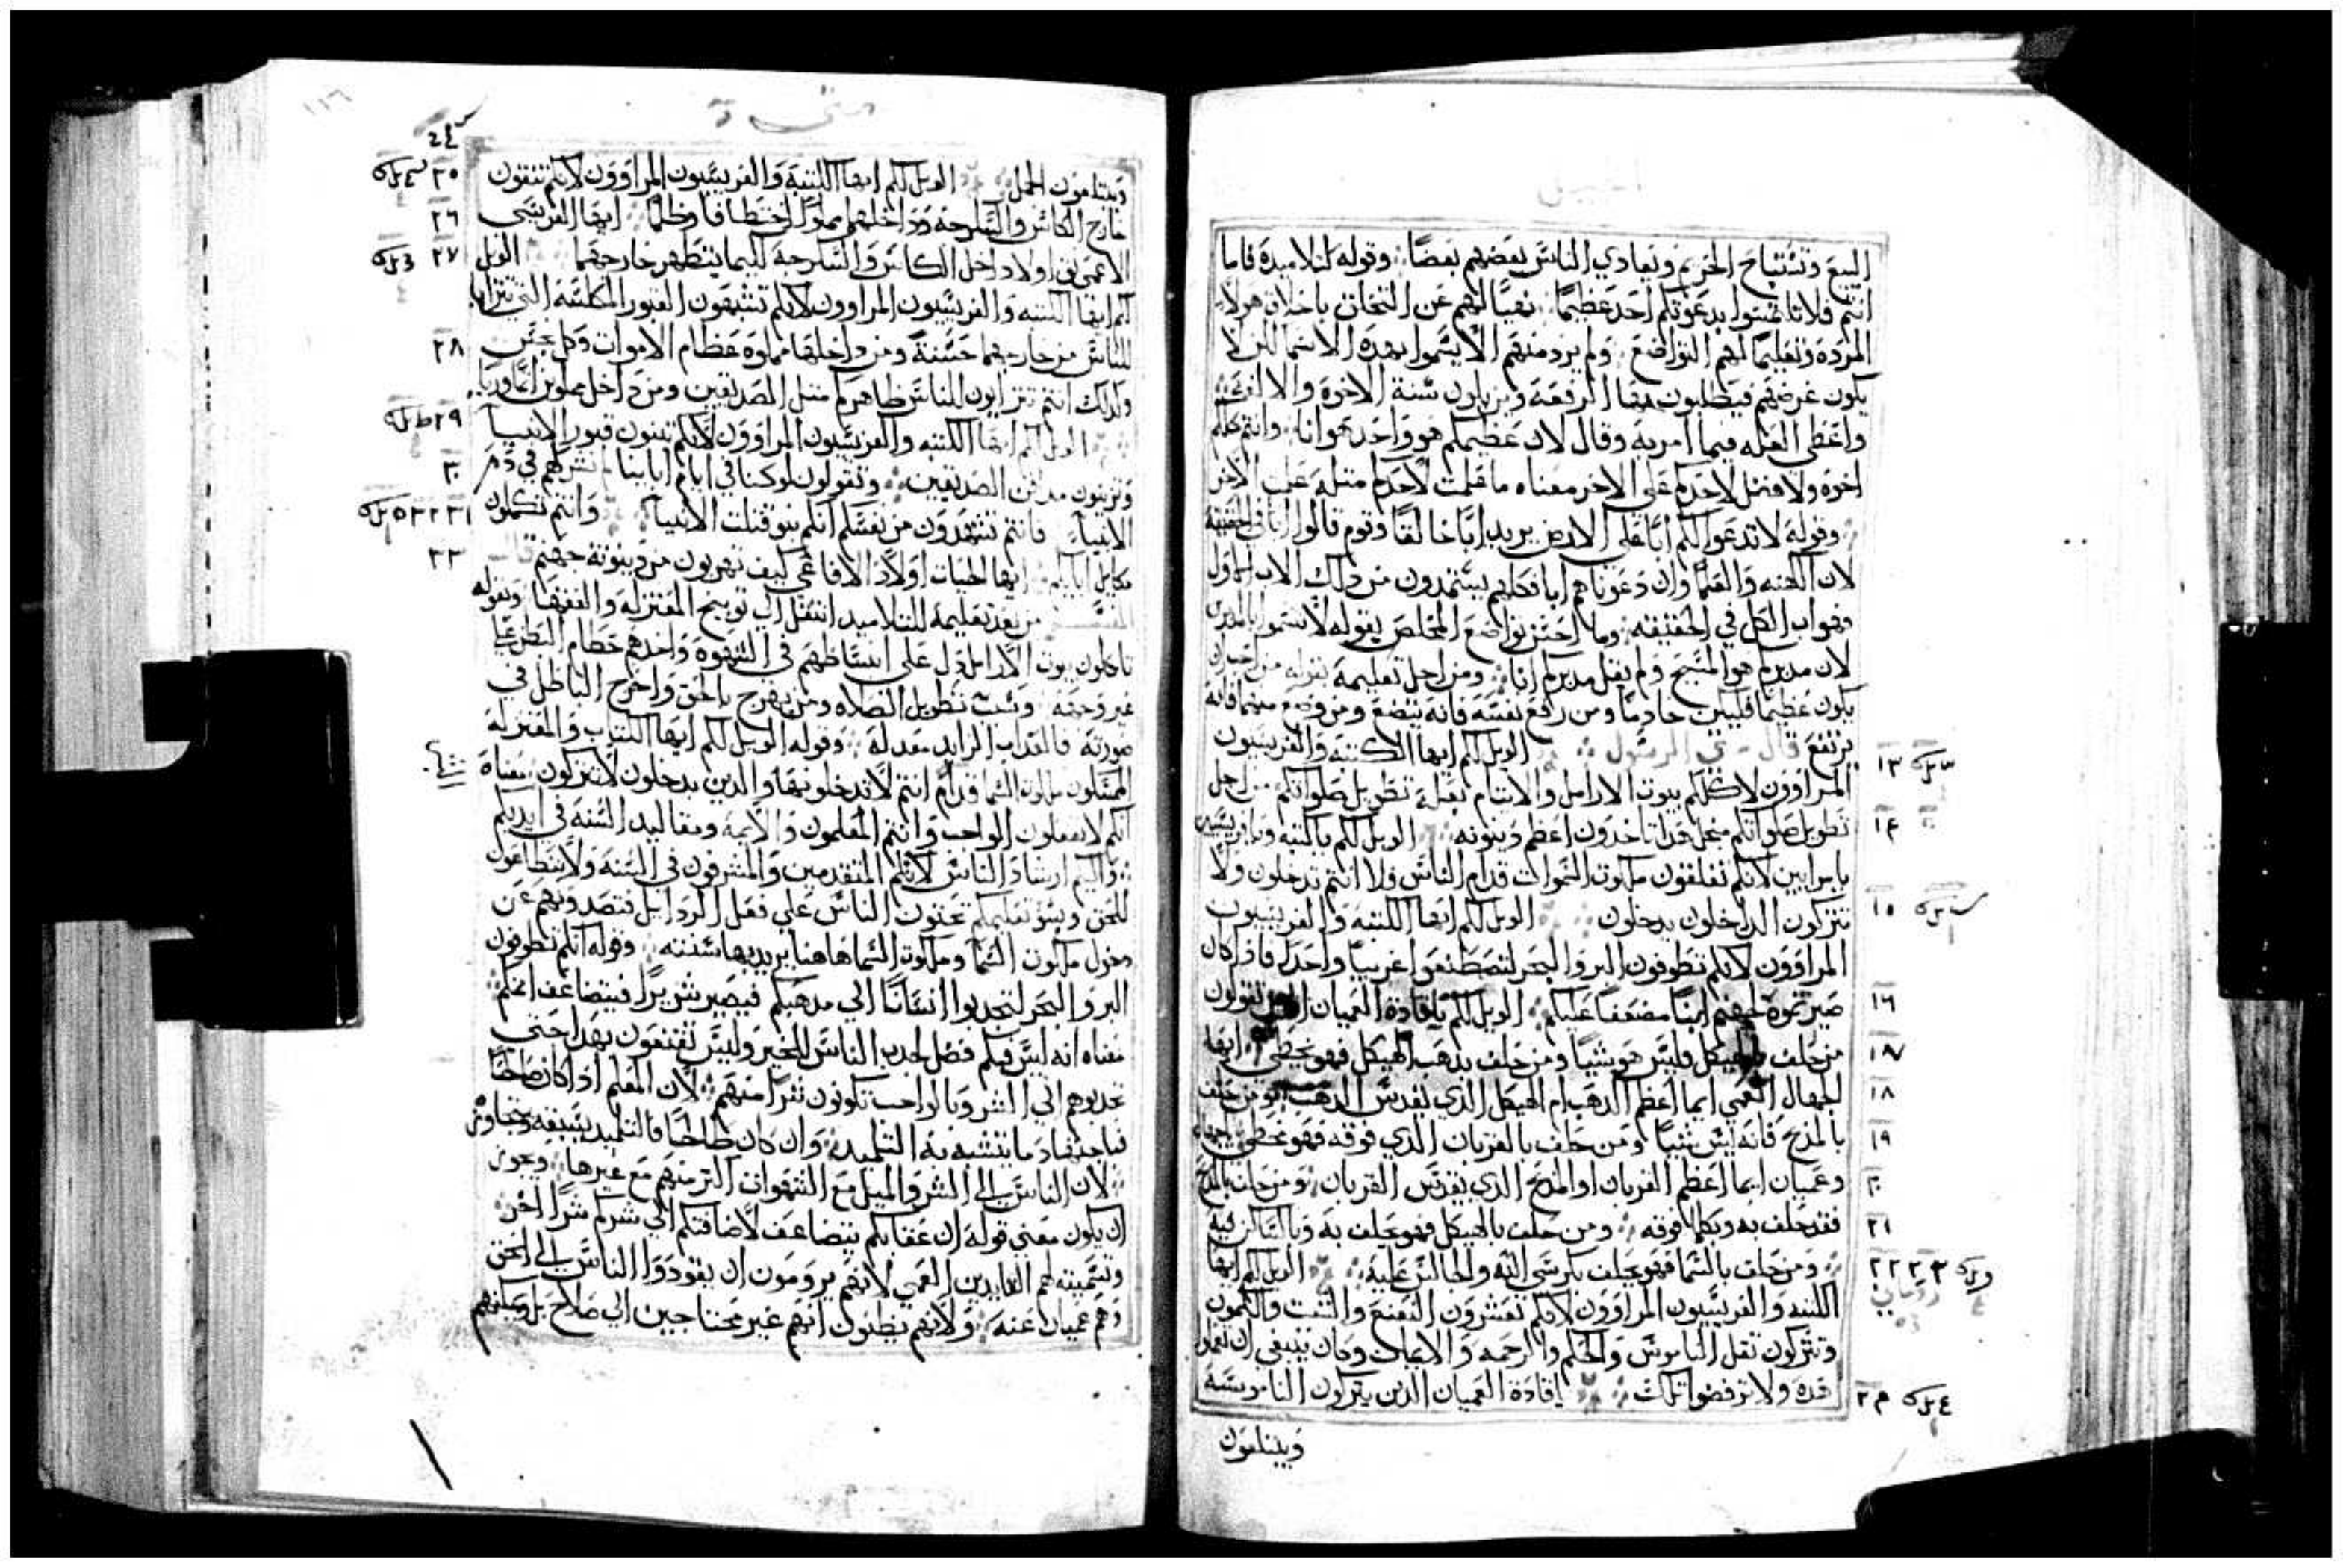 البيع وتستباح الحريم ويعادي الناس بعضهم بعضًا وقوله لتلاميده فاما
انتم فلا تلتمسوا بدعوتكم احد عظيمًا نهيًا لهم عن التخلق باخلاق هولاء
المردة وتعليمًا لهم التواضع ولم يرد منهم الا يتسموا بهده الاسما لكن لا
يكون غرضهم فيطلبون بها الرفعة ومن يكون سنة الاخوة والالفة
واعطى العله فيما امر به وقال لان عظيمكم هو واحد هو انا وانتم كلكم
اخوة ولا فضل لاحدكم على الاخر معناه ما قلمت لاحدكم مثله على الاخر
وقوله لا تدعوا لكم ابًا على الارض يريد ابًا خالقًا وقوم قالوا ابًا في الحقيقة
لان الكهنه والعلما وان دعوناهم ابا فكلهم يستمدون من دلك الاب الاول
فهو اب الكل في الحقيقه وما احسن تواضع المخلص بقوله لا تسموا بالمدبرين
لان مدبركم هو المسيح ولم يقل مدبركم انا ومن اجل تعليمه بقوله من احب ان
يكون عظيمًا فليكن خادمًا ومن رفع نفسه فانه يتضع ومن وضع منها فانه
يرتفع قال متى الرسول الويل لكم ايها الكتبه والفريسيون
المراوون لاكلكم بيوت الارامل والايتام بعلة تطويل صلواتكم من اجل
تطويل صلواتكم منجل هدا تاخدون اعظم دينونه الويل لكم ياكتبه ويافريسيين
يامرايين لانكم تغلقون ملكوت السموات قدام الناس فلا انتم تدخلون ولا
تتركون الداخلون يدخلون الويل لكم ايها الكتبه والفريسيون
المراوون لانكم تطوفون البر والبحر لتصطنعوا غريبًا واحدًا فادا كان
صيرتموه لجهنم ابنًا مضعفًا عليكم الويل لكم ياقادة العميان القولون
من حلف بالهيكل فليس هو شيًا ومن حلف بدهب الهيكل فهو يخطي ايها
الجهال العمي ايما اعظم الدهب ام الهيكل الذي يقدس الدهب ومن حلف
بالمدبح فانه ليس شيًا ومن حلف بالقربان الذي فوقه فهو يخطي ياجهال
وعميان ايما اعظم القربان او المدبح الذي يقدس القربان ومن حلف بالمدبح
فقد حلف به وبكلما فوقه ومن حلف بالهيكل فهو يحلف به وبالساكن فيه
ومن حلف بالسما فهو يحلف بكرسي الله والجالس عليه الويل لكم ايها
الكتبه والفريسيون المراوون لانكم تعشرون النعنع والشبت والكمون
وتتركون ثقل الناموس والحكم والرحمه والايمان وكان ينبغي ان تعمل
هده ولا ترفضوا تلك ياقادة العميان الدين يتركون الناموسه
ويبتلعون
١٣
١٤
١٥
١٦
١٧
١٨
١٩
٢٠
٢١
٢٢ ٢٣
٢٤
متى
١١٦
ويبتلعون الجمل الويل لكم ايها الكتبة والفريسيون المراوون لانكم تنقون
خارج الكاس والسكرجه وداخلهما مملوا اختطافًا وظلمًا ايها الفريسي
الاعمى نق اولا داخل الكاس والسكرجة لكيما يتطهر خارجهما الويل
لكم ايها الكتبه والفريسيون المراوون لانكم تشبهون القبور المكلسة التي تترايا
للناس من خارجها حسنة ومن داخلها مملوه عظام الاموات وكل نجس
وكدلك انتم تترايون للناس ظاهركم مثل الصديقين ومن داخل مملوين اثمًا وريا
الويل لكم ايها الكتبه والفريسيون المراوون لانكم تبنون قبور الانبيا
وتزينون مدافن الصديقين وتقولون لو كنا في ايام ابايينا لم نشركهم في دم
الانبيا فانتم تشهدون من نفسكم انكم بنو قتلت الانبيا وانتم تكملون
مكايل اباييكم ايها الحيات اولاد الافاعي كيف تهربون من دينونة جهنم قال
المفسر من بعد تعليمة للتلاميد انتقل الى توبيخ المعتزله والفقها وبقوله
تاكلون بيوت الارامل دل على انبساطهم في الشهوة واخدهم حطام البطر عيا
غير وجهه وسبب تطويل الصلاه ومن بهرج بالحق واخرج الباطل في
صورته فالعداب الزايد معد له وقوله الويل لكم ايها الكتاب والمعتزله
الممسكون ملكوت السما قدام انتم لا تدخلونها والدين يدخلون لا تتركون معناه
انكم لا تفعلون الواجب وانتم المعلمون والايمة ومقاليد السنه في ايديكم
واليكم ارشاد الناس لانكم المتقدمين والمشرفون في السنه ولا تنطاعون
للحق وبسو تعليمكم تحتون الناس علي فعل الردايل فتصدونهم عن
دخول ملكوت السما وملكوت السما هاهنا يريد بها سننه وقوله انكم تطوفون
البر والبحر لتجدبوا انسانًا الي مدهبكم فيصير شريرًا فيتضاعف اتمكم
معناه انه ليس فيكم فضل لجدب الناس للخير وليس تقنعون بهدا حتى
تجدبوهم الي الشر وبالواجب تكونون شرًا منهم لان المعلم ادا كان صالحًا
فباجتهاد ما يتشبه به التلميد وان كان طالحًا فالتلميد يسبقه ويتجاوز
لان الناس الي الشر والميل مع الشهوات اكتر منهم مع غيرها ويجوز
ان يكون معنى قوله ان عقابكم يتضاعف لاضافتكم الي شركم شرًا اخر
وتسميته لهم القايدين العمي لانهم يرومون ان يقودوا الناس الي الحق
وهم عميان عنه ولانهم يظنون انهم غير محتاجين الي صلاح بل ويمكنهم
٢٥
٢٦
٢٧
٢٨
٢٩
٣٠
٣١ ٣٢
٣٣